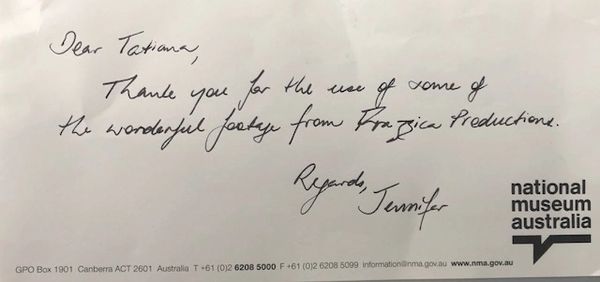 Dear Tatiana,
Thank you for the use of some of
the wonderful footage from Productions.
Regards,
Jennifer
national
museum
australia
GPO Box 1901 Canberra ACT 2601 Australia T +61 (0)2 6208 5000 F +61 (0)2 6208 5099 information@nma.gov.au www.nma.gov.au